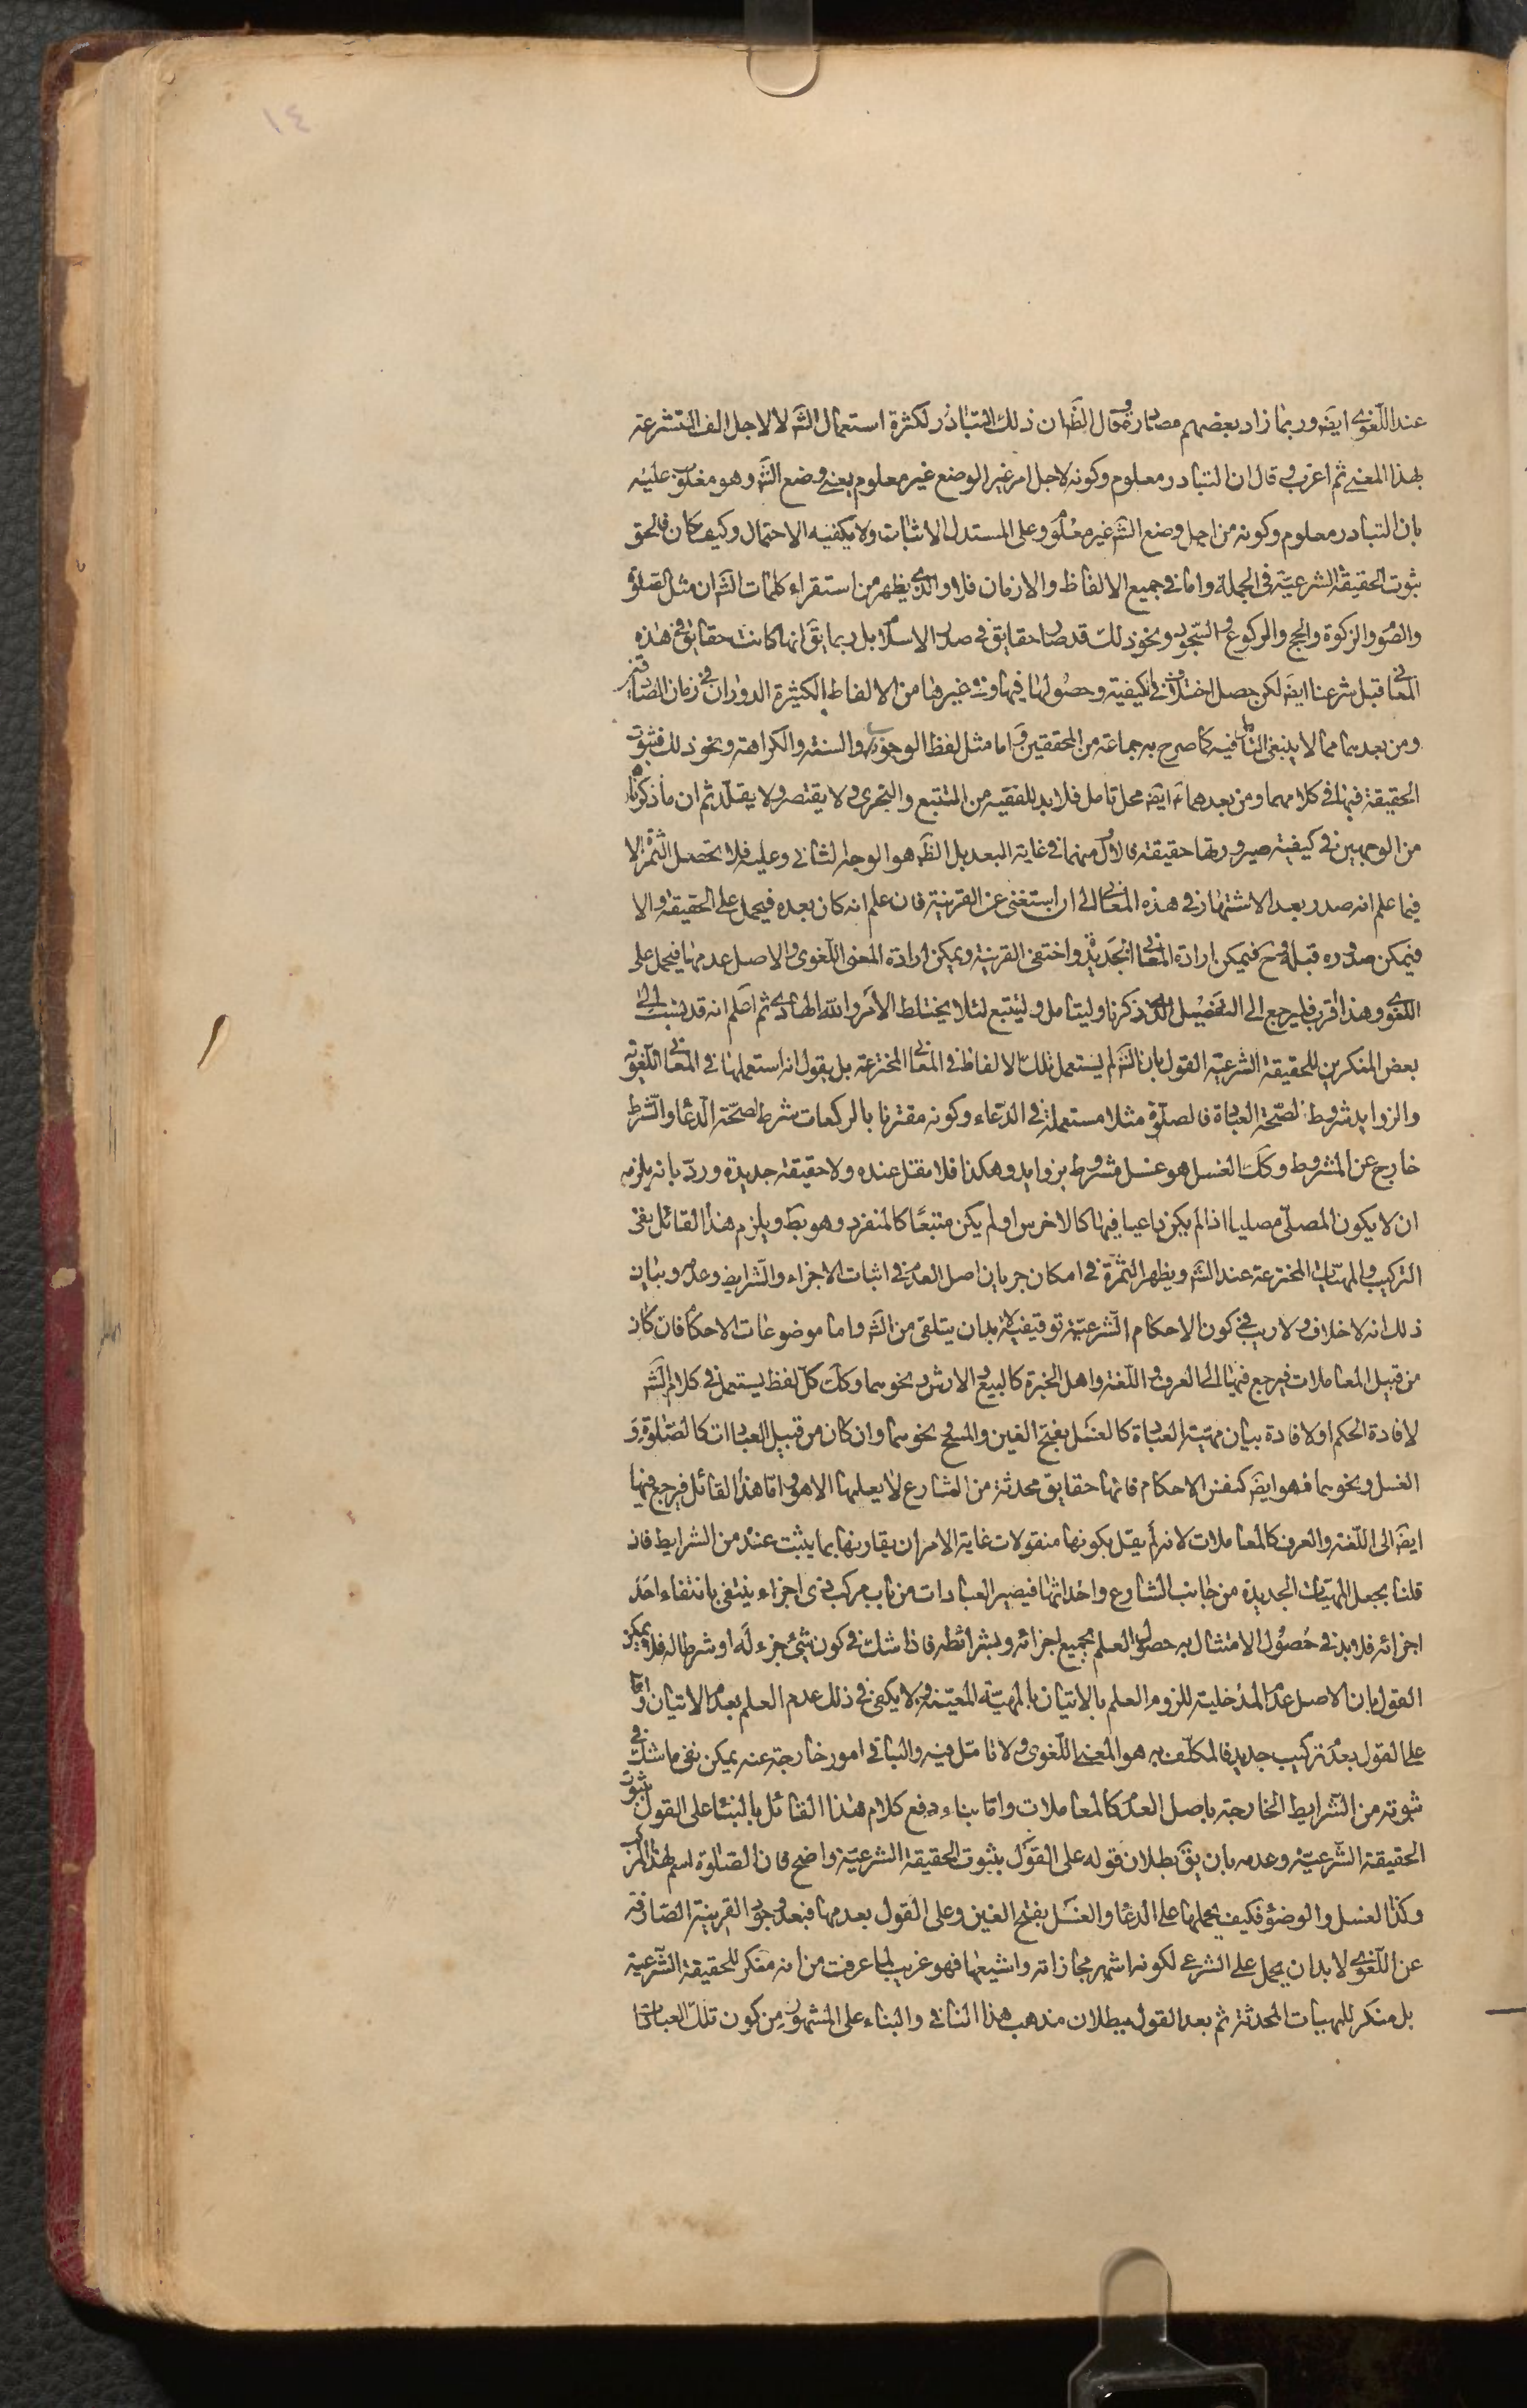 ١٤
عند اللّغوي ايضَ وربما زاد بعضهم مصادرة وقال الظَ ان ذلك التبادر لكثرة استعمال الشَ لا لاجل الف المتشرعة
لهذا المعنى ثم اعرب وقال ان التبادر معلوم وكونه لاجل امر غير الوضع غير معلوم يعنى وضع الشَ وهو مقلوب عليه
بان التبادر معلوم وكونه من اجل وضع الشَ غير معلوم وعلى المستدل الاثبات ولا يكفيه الاحتمال وكيف كان فالحق
ثبوت الحقيقة الشرعيّة فى الجملة واما فى جميع الالفاظ والازمان فلا والذى يظهر من استقراء كلمات الشَ ان مثل الصلوة
والصوم والزكوة والحج والركوع والسّجود ونحو ذلك قد صارت حقايق فى صدر الاسلام بل ربما يقَ انها كانت حقايق فى هذه
المعانى قبل شرعنا ايضَ لكن حصل اختلاف فى الكيفية وحصولها فيها وفى غيرها من الالفاظ الكثيرة الدوران فى زمان الصادقين
ومن بعدهما مما لا ينبغى التأمل فيه كما صرح به جماعة من المحققين واما مثل لفظ الوجوب والسنة والكراهة ونحو ذلك فثبوت
الحقيقة فيها فى كلامهما ومن بعدهما ايضَ محل تامل فلا بد للفقيه من التتبع والتحرى ولا يقتصر ولا يقلّد ثم ان ما ذكرنا
من الوجهين فى كيفية صيرورتها حقيقة فالاول منهما فى غاية البعد بل الظَ هو الوجه الثانى وعليه فلا تحصل الثمرة الا
فيما علم انه صدر بعد الاشتهار فى هذه المعانى الى ان استغنى عن القرينة فان علم انه كان بعده فيحمل على الحقيقة والا
فيمكن صدوره قبله وح فيمكن ارادة المعانى الجديدة واختفى القرينة ويمكن ارادة المعنى اللّغوى والاصل عدمها فيحمل على
اللغوى وهذا اقرب فليرجع الى التفصيل الذى ذكرنا وليتامل وليتتبع لئلا يختلط الامر والله الهادى ثم اعلم انه قد ينسب الى
بعض المنكرين للحقيقة الشرعيّة القول بان الشَ لم يستعمل تلك الالفاظ فى المعانى المخترعة بل يقول انه استعملها فى المعانى اللّغوية
والزوايد شروط لصّحة العبادة فالصلوة مثلا مستعملة فى الدّعاء وكونه مقترنا بالركعات شرط لصحّة الدّعا والشّرط
خارج عن المشروط وكَك الغسل هو غسل مشروط بزوايد وهكذا فلا مقتل عنده ولا حقيقة جديدة وردّ بانه يلزمه
ان لا يكون المصلّى مصليا اذا لم يكن داعيا فيها كالاخرس او لم يكن متبعًا كالمنفرد وهو بط ويلزم هذا القائل نفى
التركيب والمهيّات المخترعة عند الشَ ويظهر الثمّرة فى امكان جريان اصل العدم فى اثبات الاجزاء والشرايط وعدمه وبيان
ذلك انه لا خلاف ولا ريب فى كون الاحكام الشّرعيّة توقيفية لا بد ان يتلقى من الشَ واما موضوعات الاحكام فان كان
من قبيل المعاملات فيرجع فيها الى العرف واللّغة واهل الخبرة كالبيع والارش ونحوهما وكَك كلّ لفظ يستعمل فى كلام الشَ
لافادة الحكم او لافادة بيان مهيّة العبادة كالغسل بفتح الغين والمسح ونحوهما وان كان من قبيل العبادات كالصّلوة و
الغسل ونحوهما فهو ايضَ كنفس الاحكام فانها حقايق محدثة من الشارع لا يعلمها الا هو واما هذا القائل فيرجع فيها
ايضَ الى اللّغة والعرف كالمعاملات لانه لم يقل بكونها منقولات غاية الامر ان يقارنها بما يثبت عنده من الشرايط فان
قلنا بجعل المهيّات الجديدة من جانب الشارع واحداثها فيصير العبادات من باب مركب ذى اجزاء ينتفى بانتفاء احد
اجزائه فلا بد فى حصول الامتثال به حصول العلم بجميع اجزائه وبشرائطه فاذا شك فى كون شئ جزء له او شرطا له فلا يمكن
القول بان الاصل عدم المدخلية للزوم العلم بالاتيان بالمهيّة المعيّنة ولا يكفى فى ذلك عدم العلم بعدم الاتيان واما
على القول بعدم تركيب جديد فالمكلّف به هو المعنى اللّغوى ولا تامّل فيه والباقى امور خارجة عنه يمكن نفى ما شك فى
ثبوته من الشّرايط الخارجة باصل العدم كالمعاملات واما بناء دفع كلام هذا القائل بالبناء على القول بثبوت
الحقيقة الشّرعيّة وعدمه بان يقَ بطلان قوله على القول بثبوت الحقيقة الشرعيّة واضح فان الصلوة اسم لهذا المركب
وكذا الغسل والوضوء فكيف يحملها على الدعا والغسل بفتح الغين وعلى القول بعدمها فبعد وجود القرينة الصّارفة
عن اللّغوى لا بد ان يحمل على الشرعى لكونه اشهر مجازاته واشيعها فهو غريب لما عرفت من انه منكر للحقيقة الشّرعيّة
بل منكر للمهيات المحدثة ثم بعد القول ببطلان مذهب هذا النافى والبناء على المشهور من كون تلك العبادات